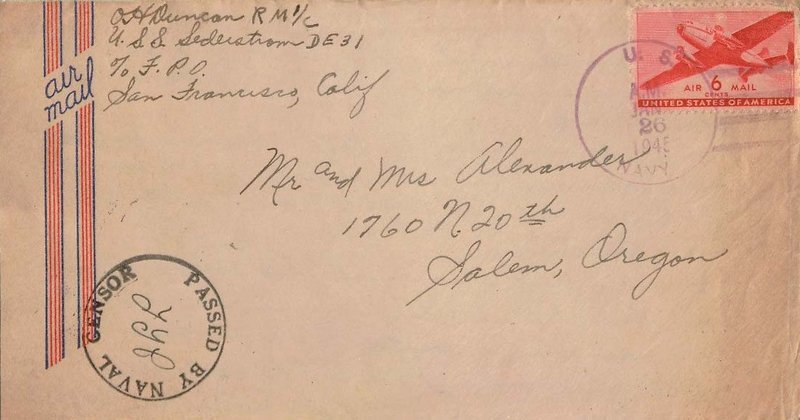 OH Duncan RM 1/c
U.S.S. Sederstrom DE31
℅ F.P.O.
San Francisco, Calif
air
mail
U. S.
A.M.
JAN
26
1945
NAVY
AIR 6 MAIL
CENTS
UNITED STATES OF AMERICA
Mr and Mrs Alexander
1760 N. 20th
Salem, Oregon
PASSED BY NAVAL CENSOR